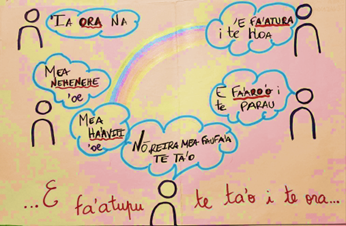 'IA ORA NA
'E FA'ATURA
i te HOA
MEA
NEHENEHE
'oe
E FA'ARO'O i
te PARAU
MEA
HA'AVITI
'oe
NO REIRA MEA FAUFA'A
TE TA'O
...E fa'atupu te ta'o i te ora...